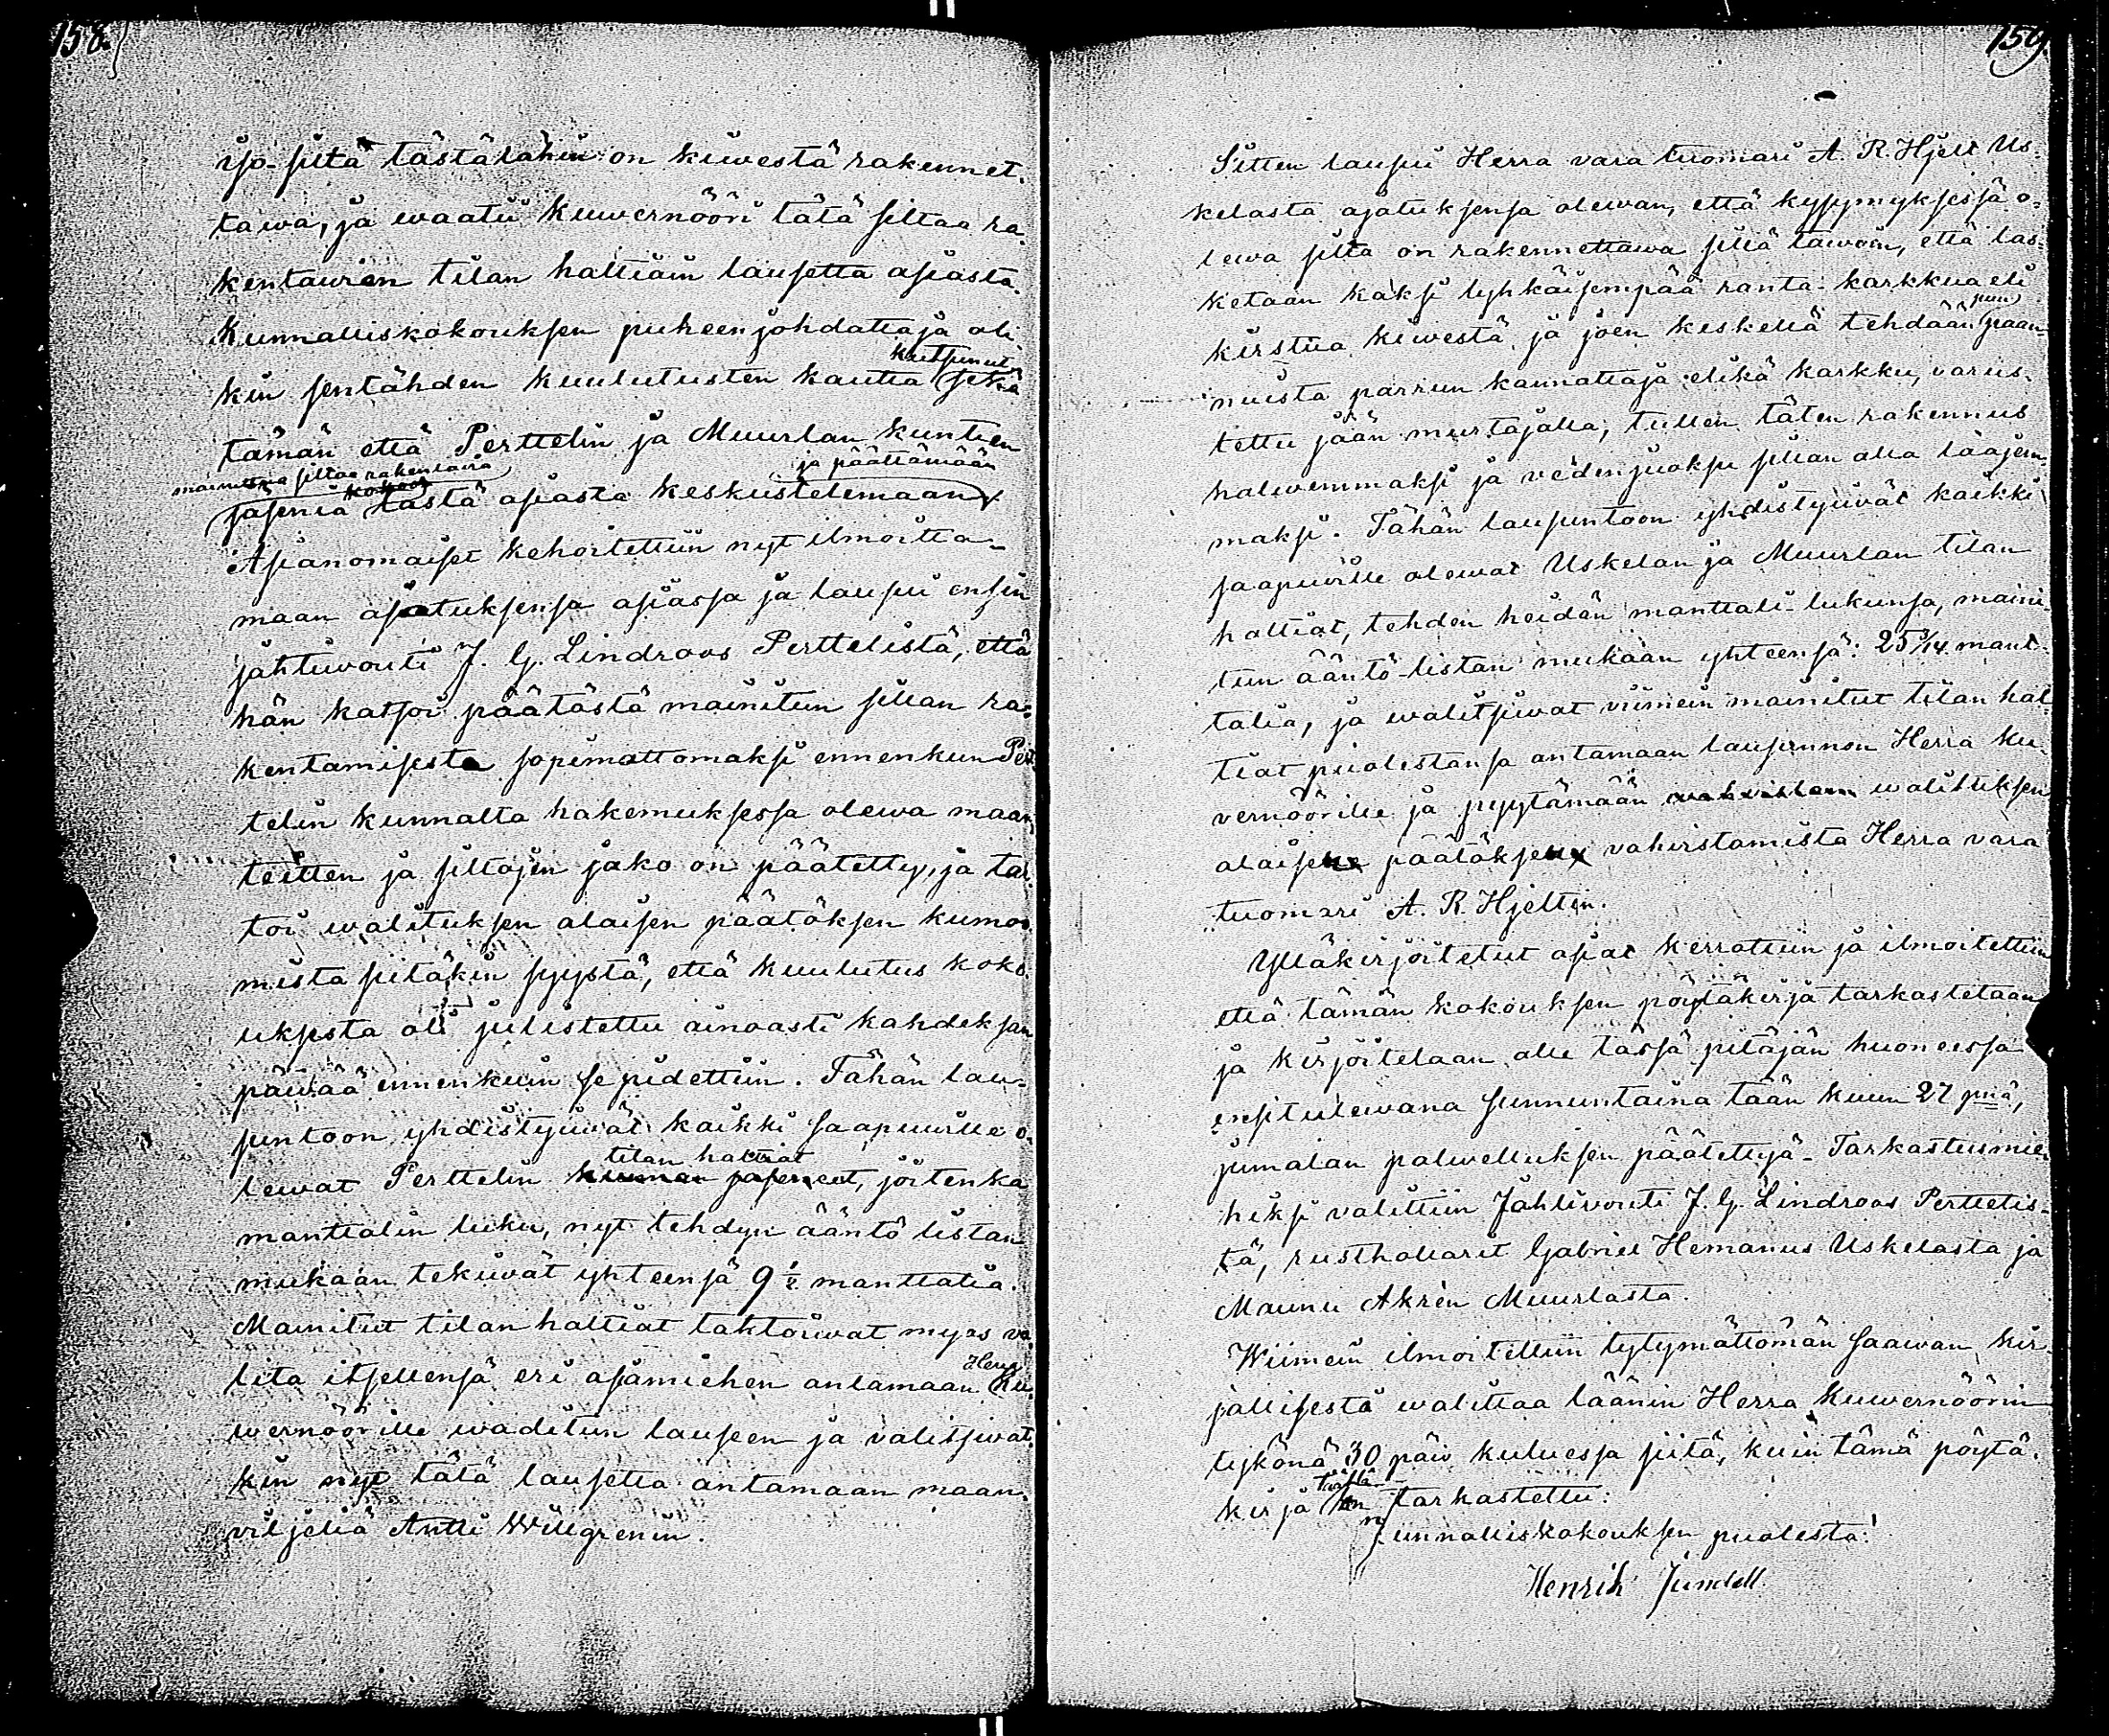 158.
jo-silta tästälähin on kiwestä rakennet-
tawa, ja waatii kuwernööri tätä siltaa ra-
kentawien tilan haltiain lausetta asiasta.
Kunnalliskokouksen puheenjohdattaja oli-
kutsunut
kin sentähden kuulutusten kautta sekä
tämän että Perttelin ja Muurlan kuntien
mainittua siltaa rakentavia ja päättämään
jäseniä kokoon tästä asiasta keskustelemaan
Asianomaiset kehoitettiin nyt ilmoitta-
maan ajatuksensa asiassa ja lausui ensin
jahtivouti J. G. Lindroos Perttelistä, että
hän katsoi päätöstä mainitun sillan ra-
kentamisesta sopimattomaksi ennenkun Pert-
telin kunnalta hakemuksessa olewa maan-
teitten ja siltajen jako on päätetty, ja tah-
toi walituksen alaisen päätöksen kumoa-
mista siitäkin syystä, että kuulutus koko-
uksesta oli julistettu ainoasti kahdeksan
päiwää ennenkuin se pidettiin. Tähän lau-
suntoon yhdistyivät kaikki saapuville o-
tilan haltiat
lewat Perttelin kunnan jäsenet, joitenka
manttalin luku, nyt tehdyn ääntö listan
mukaan tekiwät yhteensä 9 1/2 manttalia.
Mainitut tilan haltiat tahtoiwat myös va-
Herra
lita itsellensä eri asiamiehen antamaan Ku-
wernöörille waditun lauseen ja valitsiwat-
kin nyt tätä lausetta antamaan maan-
viljeliä Antti Willgrenin.
159.
Sitten lausui Herra vara tuomari A. R. Hjelt Us-
kelasta ajatuksensa olewan, että kysymyksessä o-
lewa silta on rakennettawa sillä tawoin, että las-
ketaan kaksi lyhkäisempää ranta-karkkua eli
puu
kirstua kiwestä ja joen keskellä tehdään paan-
nuista parrun kannattaja elikä karkku, varus-
tettu jään murtajalla, tullen täten rakennus
halwemmaksi ja veden juoksu sillan alla laajem-
maksi. Tähän lausuntoon yhdistyivät kaikki
saapuville olewat Uskelan ja Muurlan tilan
haltiat, tehden heidän manttali-lukunsa, maini-
tun ääntö-listan mukaan yhteensä: 25 3/14 mant-
talia, ja walitsiwat viimein mainitut tilan hal-
tiat puolestansa antamaan lausunnon Herra Ku-
vernöörille ja pyytämään walituksen
alaisen päätöksen vahvistamista Herra vara
tuomari A. R. Hjeltin.
Ylläkirjoitetut asiat kerrattiin ja ilmoitettiin
että tämän kokouksen pöytäkirja tarkastetaan
ja kirjoitetaan alle tässä pitäjän huoneessa
ensitulewana sunnuntaina tään kuun 27 pnä,
jumalan palwelluksen päätettyä. Tarkastusmie-
hiksi valittiin Jahtivouti J. G. Lindroos Perttelis-
tä, rusthollarit Gabriel Hemanus Uskelasta ja
Maunu Akrèn Muurlasta.
Wiimein ilmoitettiin tytymättömän saawan kir-
jallisesti walittaa läänin Herra Kuwernöörin
tykönä 30 päiv. kuluessa siitä, kuin tämä pöytä-
kirja on tarkastettu.
Kunnalliskokouksen puolesta:
Henrik Jundell